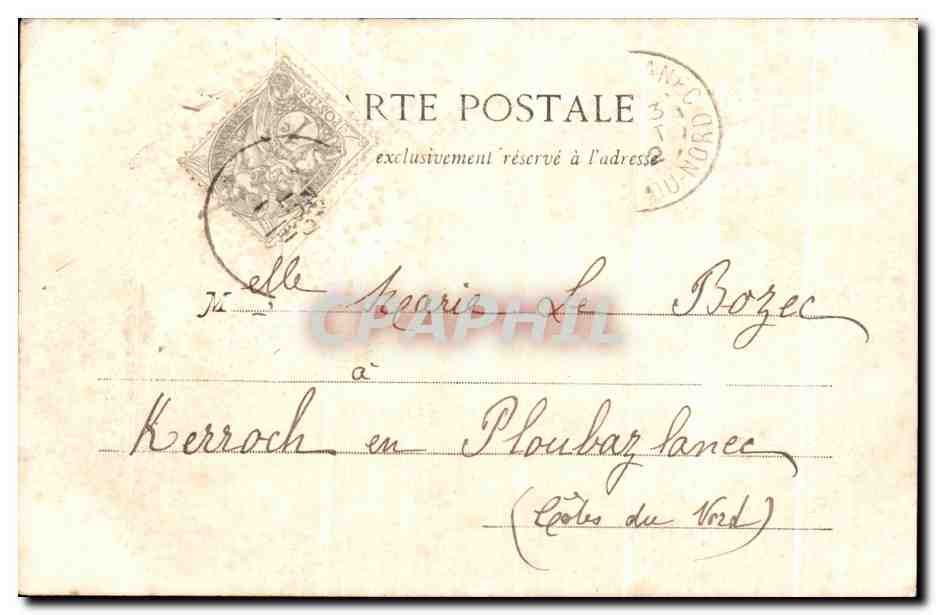 ARTE POSTALE
exclusivement réservé à l'adresse
ANEC
DU-NORD
Melle Marie Le Bozec
CPAPHIL
à
Kerroch en Ploubazlanec
(Côtes du Nord)